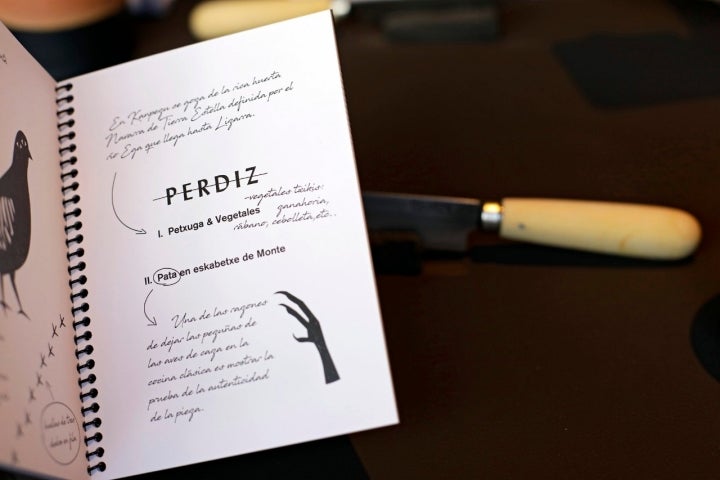 En Kanpezu se goza de la rica huerta
Navarra de Tierra Estella definida por el
río Ega que llega hasta Lizarra.
PERDIZ
-vegetales txikis:
ganahoria,
rábano, cebolleta, etc..
I. Petxuga & Vegetales
II. Pata en eskabetxe de Monte
Una de las razones
de dejar las pezuñas de
las aves de caza en la
cocina clásica es mostrar la
prueba de la autenticidad
de la pieza.
huellas de tres
dedos en fila